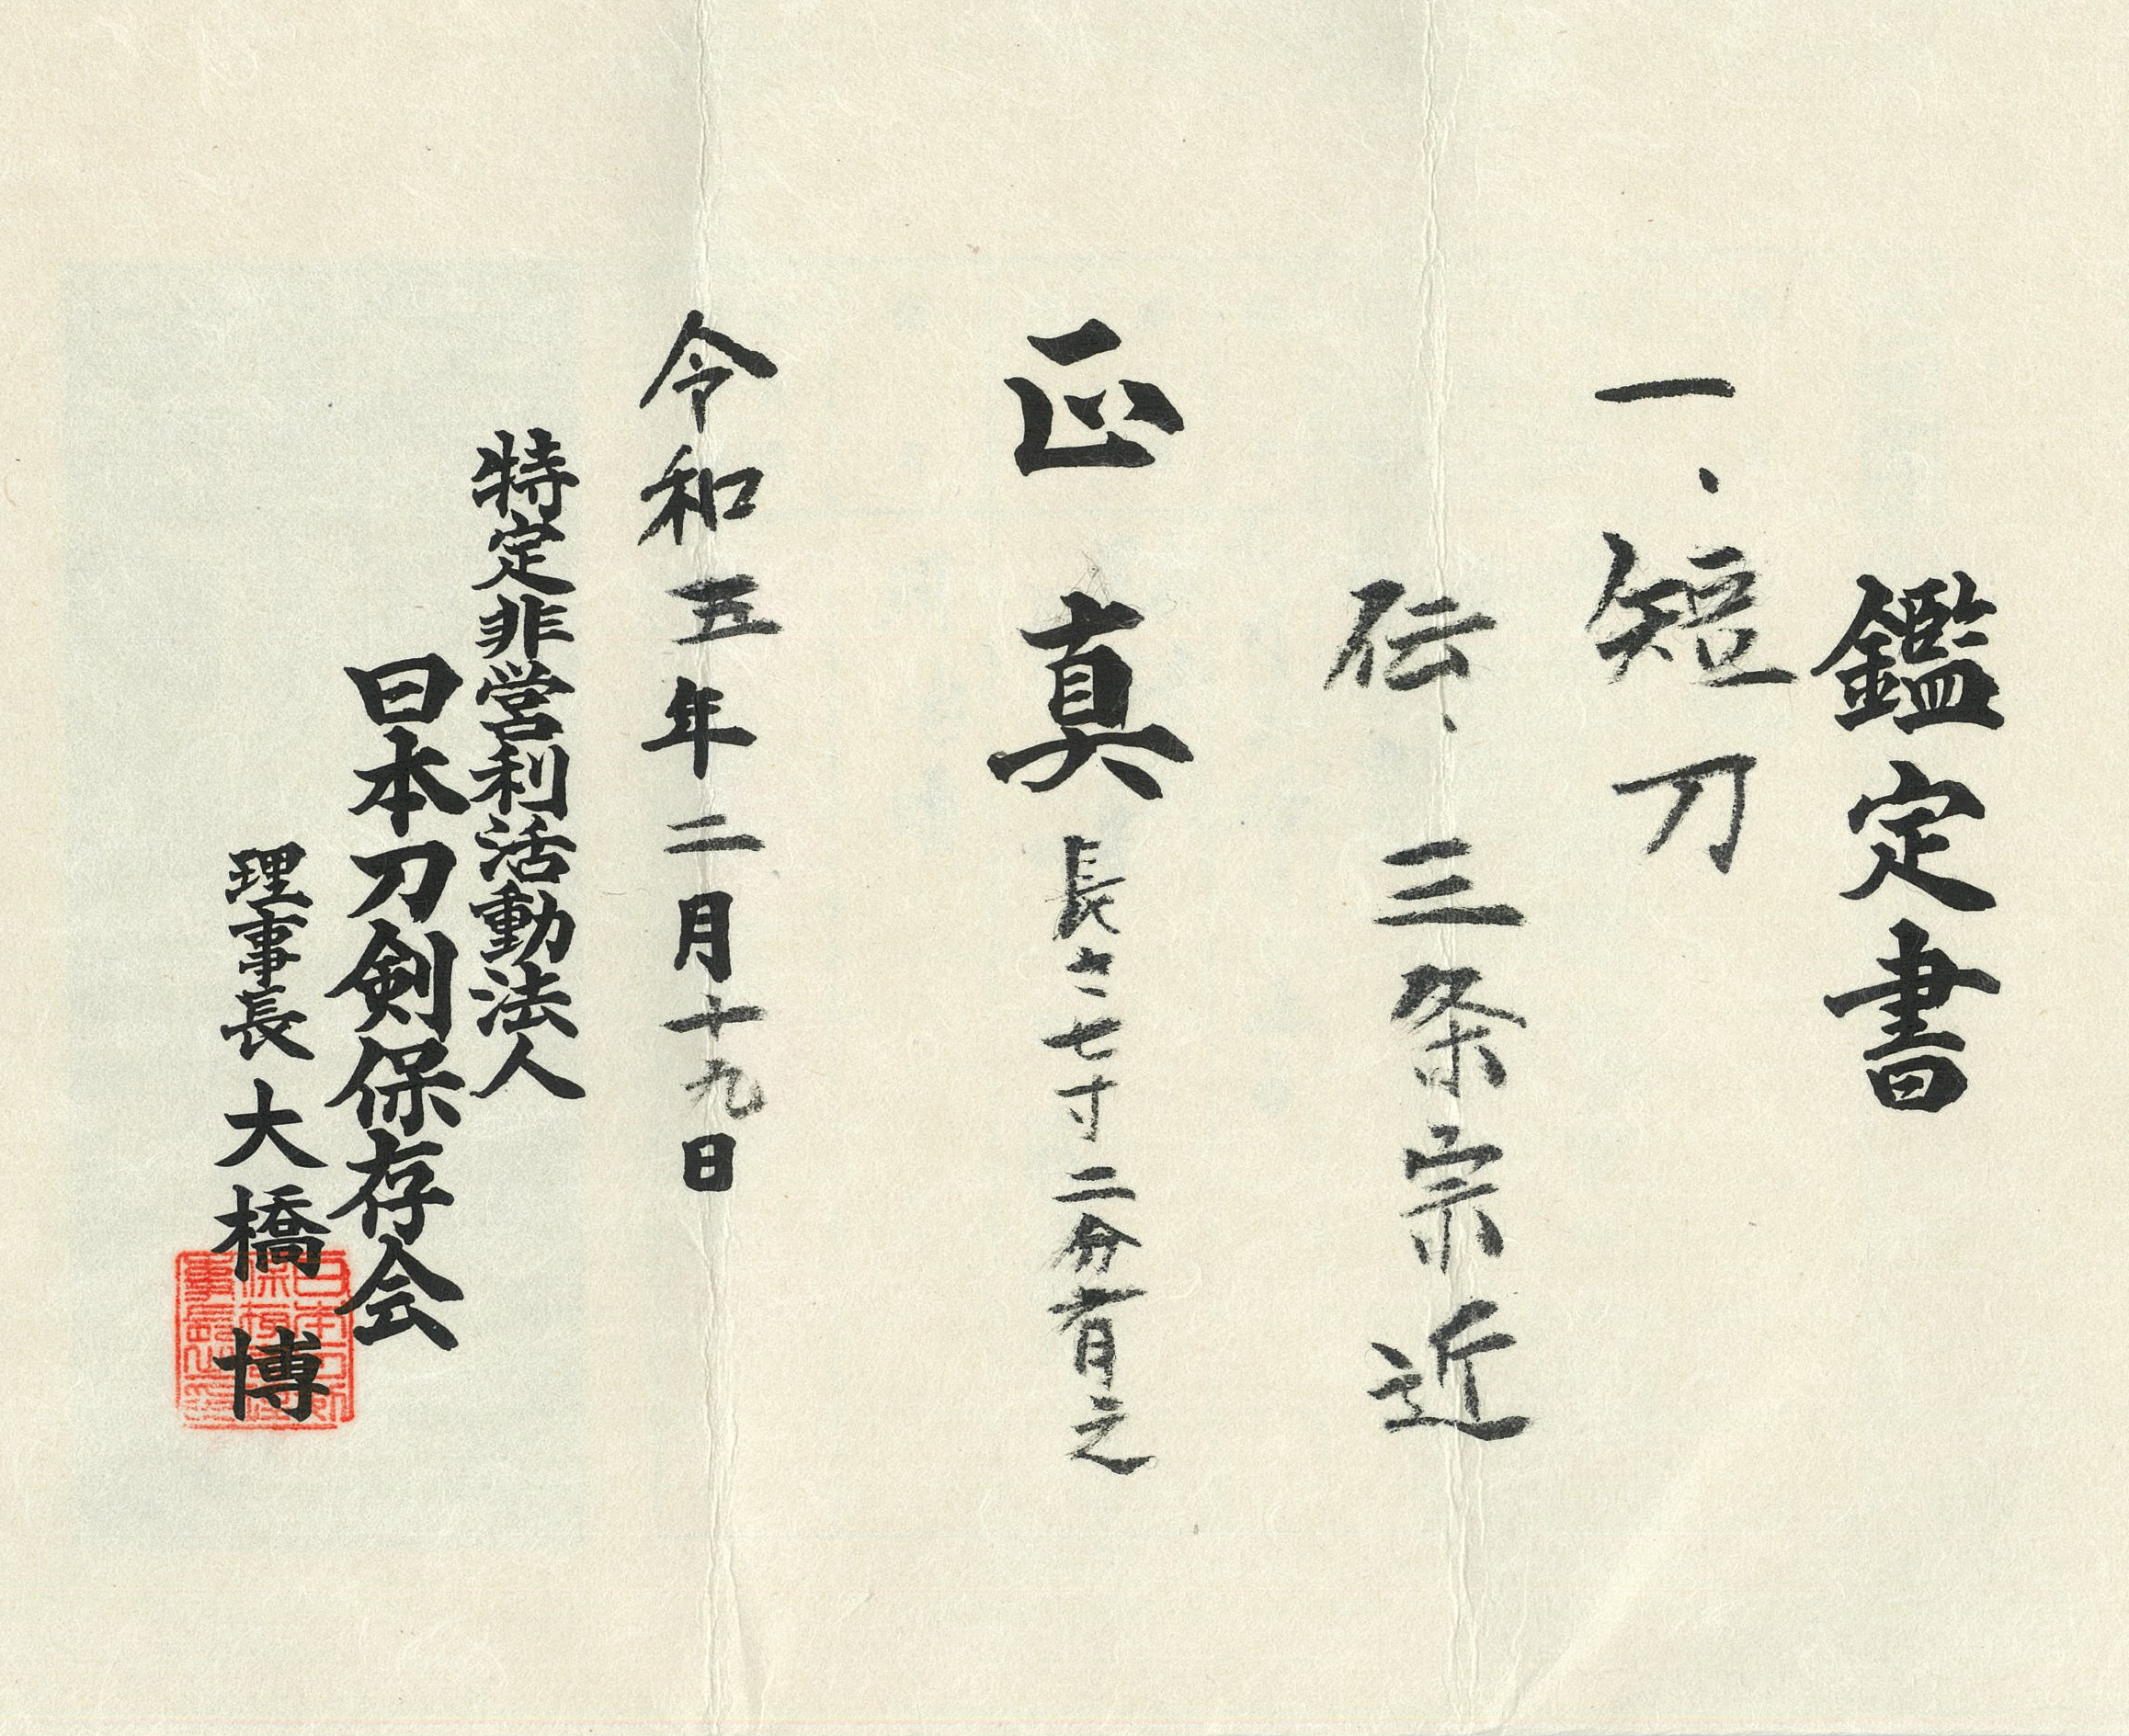 鑑定書
一、短刀
伝、三条宗近
正真 長さ七寸二分有之
令和五年二月十九日
特定非営利活動法人
日本刀剣保存会
理事長 大橋博